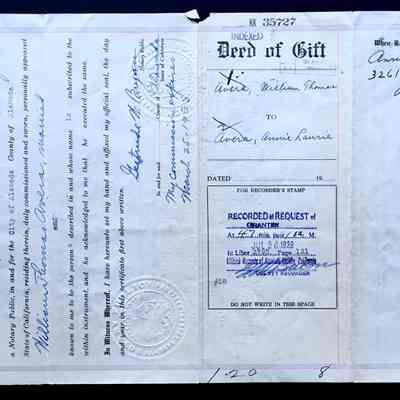 a Notary Public, in and for the City of Alameda County of Alameda
State of California, residing therein, duly commissioned and sworn, personally appeared
William Thomas Avera, married
known to me to be the person described in and whose name is subscribed to the
within instrument, and he acknowledged to me that he executed the same.
In Witness Whereof, I have hereunto set my hand and affixed my official seal, the day
and year in this certificate first above written.
Gertrude W.
Notary Public
In and for said
County of Alameda
State of California
My Commission expires
March 25, 1935
RR 35727
INDEXED
Deed of Gift
Avera, William Thomas
TO
Avera, Annie Laurie
DATED 19
FOR RECORDER'S STAMP
RECORDED at REQUEST of
GRANTEE
At 47 min. past 10 A. M.
1933
In Liber Page
Official Records of Alameda County, California
COUNTY RECORDER
DO NOT WRITE IN THIS SPACE
1.20 8
When Re
Annie
3261